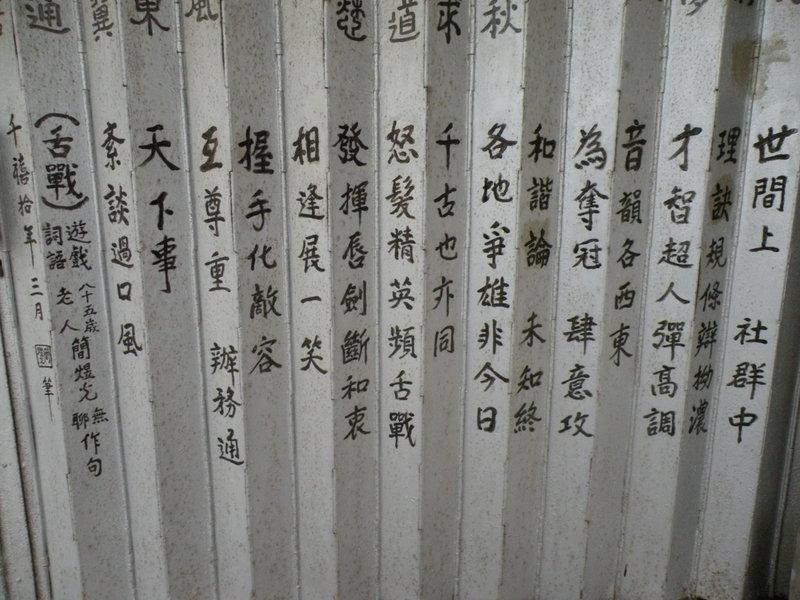 秋
求
道
風
東
通
世間上 社群中
理訣規條辯拗濃
才智超人彈高調
音韻各西東
為奪冠 肆意攻
和諧論 未知終
各地爭雄非今日
千古也亦同
怒髮精英頻舌戰
發揮唇劍斷和衷
相逢展一笑
握手化敵容
互尊重 辦務通
天下事
紊談過口風
(舌戰)遊戲詞語 八十五歲老人簡煜光無聊作句
千禧拾年三月 筆